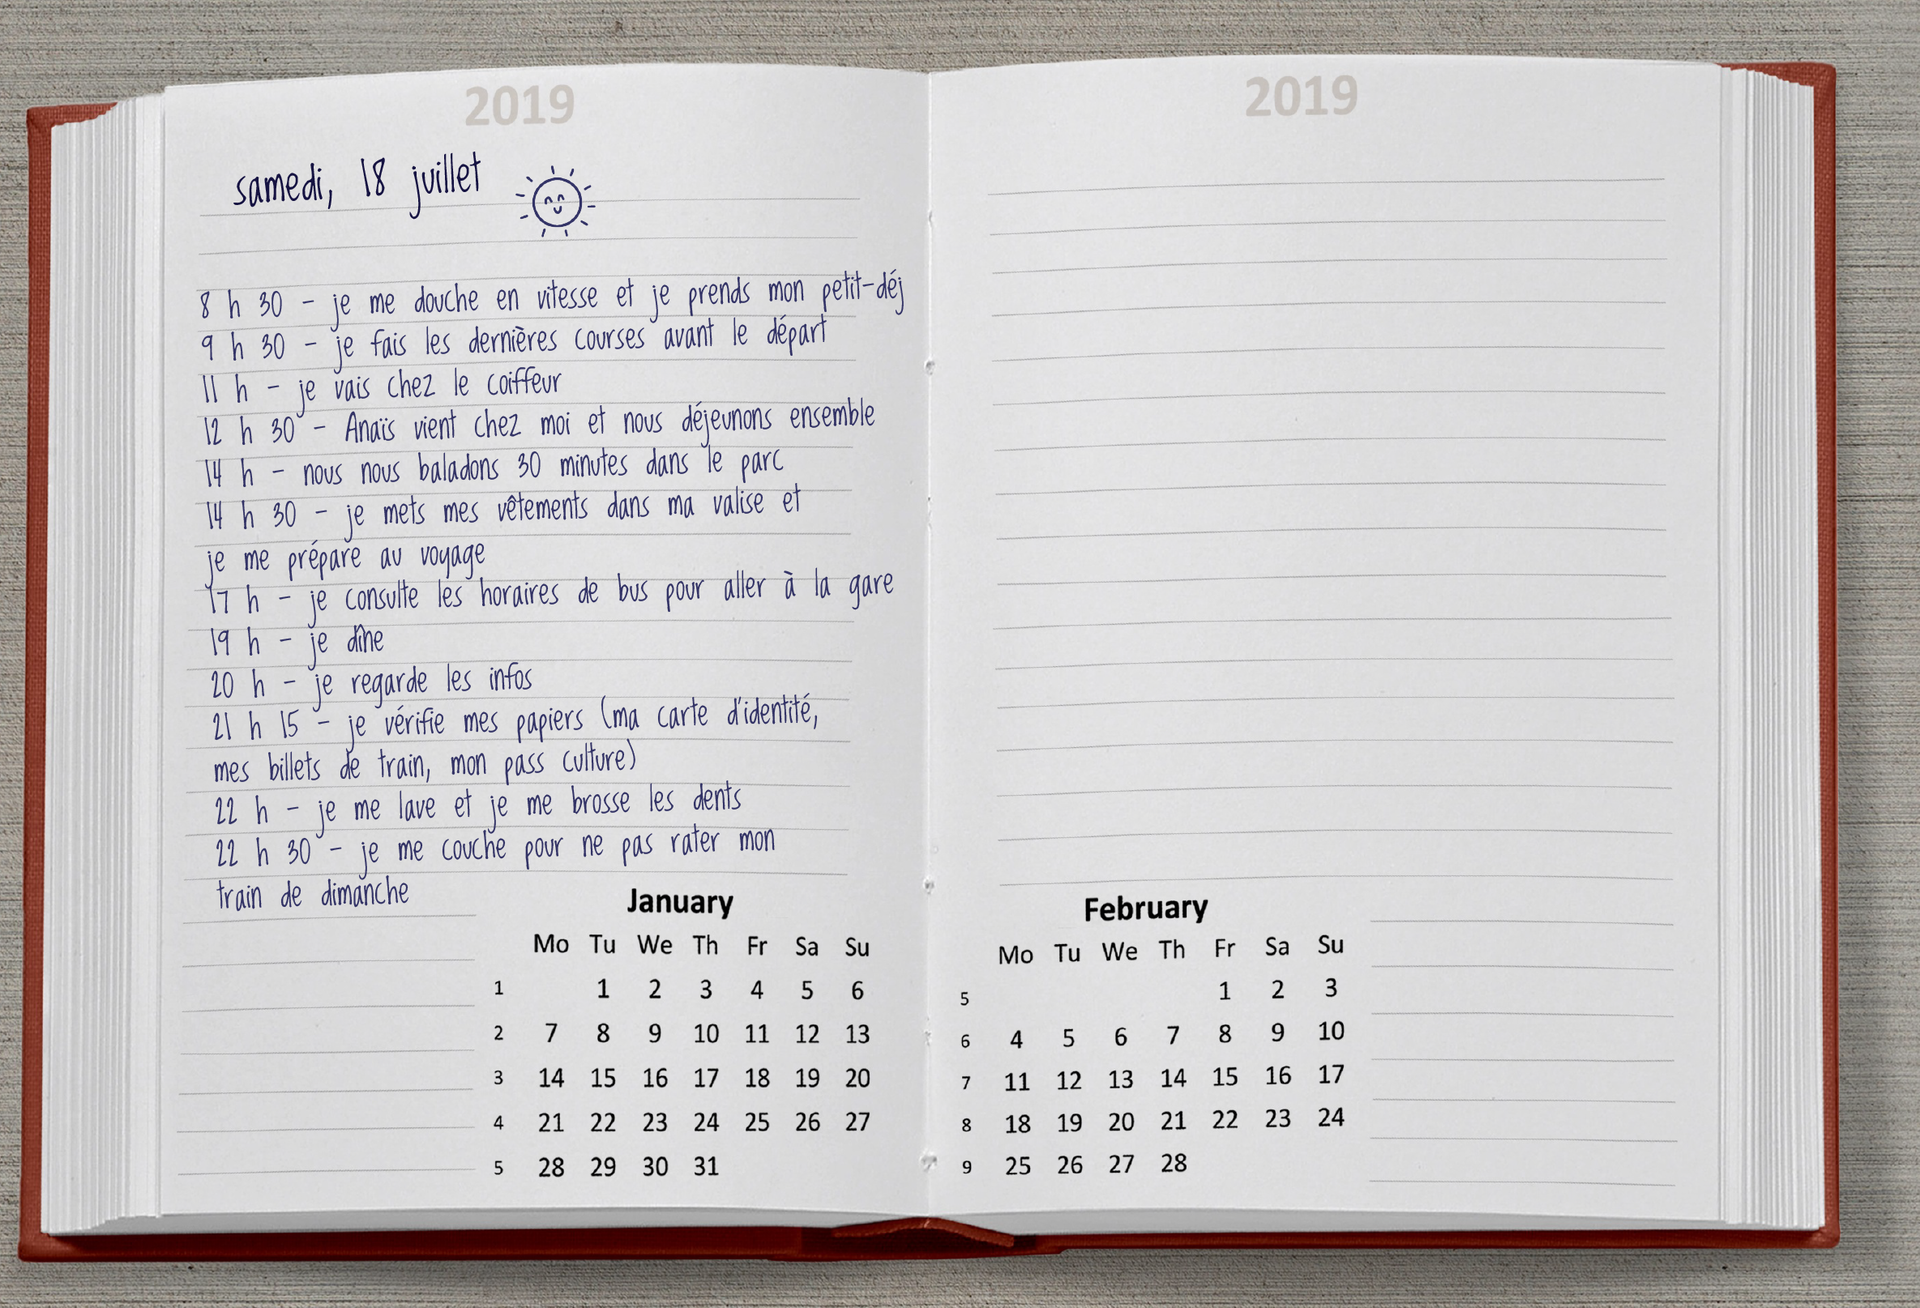 2019
samedi, 18 juillet
8 h 30 - je me douche en vitesse et je prends mon petit-déj
9 h 30 - je fais les dernières courses avant le départ
11 h - je vais chez le coiffeur
12 h 30 - Anaïs vient chez moi et nous déjeunons ensemble
14 h - nous nous baladons 30 minutes dans le parc
14 h 30 - je mets mes vêtements dans ma valise et
je me prépare au voyage
17 h - je consulte les horaires de bus pour aller à la gare
19 h - je dîne
20 h - je regarde les infos
21 h 15 - je vérifie mes papiers (ma carte d'identité,
mes billets de train, mon pass culture)
22 h - je me lave et je me brosse les dents
22 h 30 - je me couche pour ne pas rater mon
train de dimanche
January
Mo Tu We Th Fr Sa Su
1 1 2 3 4 5 6
2 7 8 9 10 11 12 13
3 14 15 16 17 18 19 20
4 21 22 23 24 25 26 27
5 28 29 30 31
2019
February
Mo Tu We Th Fr Sa Su
5 1 2 3
6 4 5 6 7 8 9 10
7 11 12 13 14 15 16 17
8 18 19 20 21 22 23 24
9 25 26 27 28